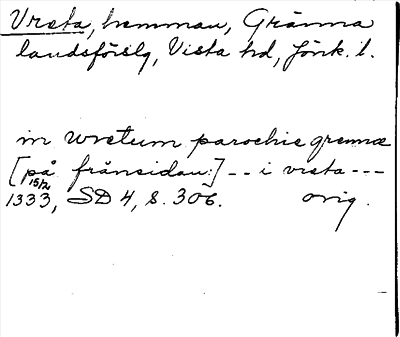 Vreta, hemman, Gränna
landsförslg, Vista hd, Jönk. l.
in wretum parochie grennæ
[på frånsidan:] -- i vreta ---
15/2
1333, SD 4, s. 306. orig.